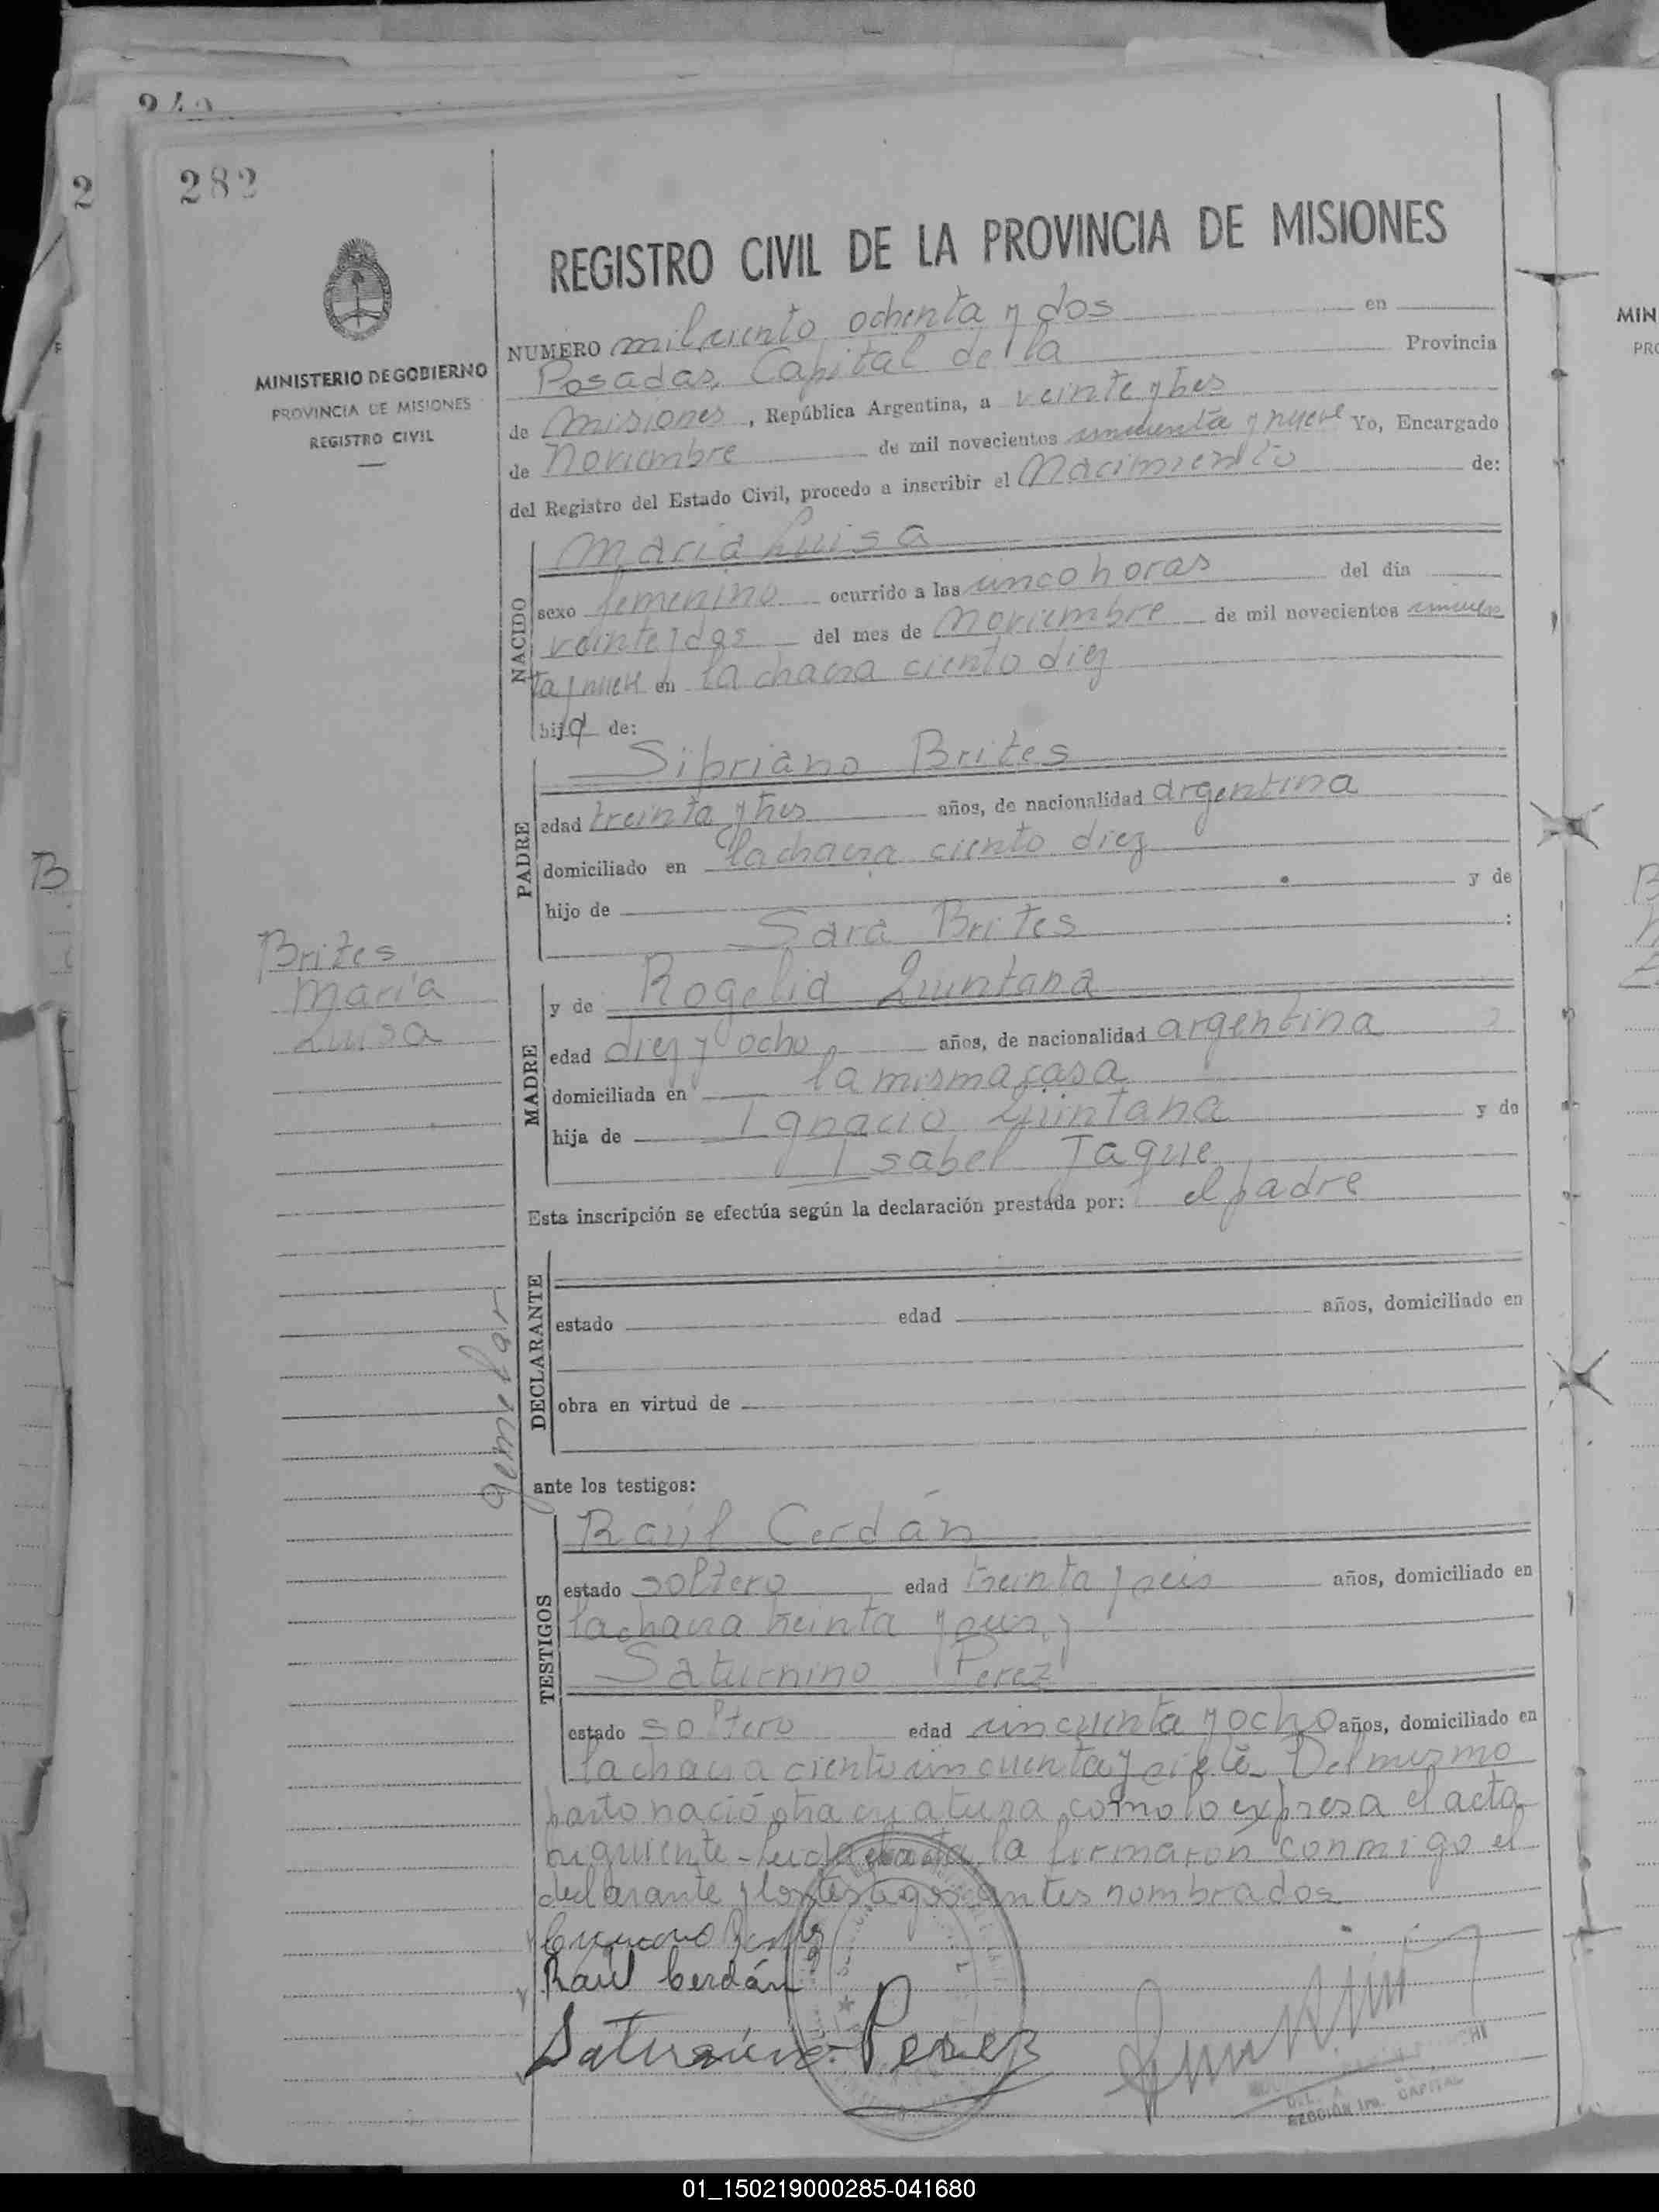 282
MINISTERIO DE GOBIERNO
PROVINCIA DE MISIONES
REGISTRO CIVIL
REGISTRO CIVIL DE LA PROVINCIA DE MISIONES
NUMERO mil ciento ochenta y dos en
Posadas, Capital de la Provincia
de Misiones, República Argentina, a veinte y tres
de Noviembre de mil novecientos cincuenta y nueve Yo, Encargado
del Registro del Estado Civil, procedo a inscribir el Nacimiento de:
NACIDO
Maria Luisa
sexo femenino ocurrido a las cinco horas del dia
veinte y dos del mes de Noviembre de mil novecientos cincuen
ta y nueve en la chacra ciento diez
hija de:
PADRE
Sipriano Brites
edad treinta y tres años, de nacionalidad argentina
domiciliado en la chacra ciento diez
hijo de y de
Sara Brites :
Brites
María
Luisa
MADRE
y de Rogelia Quintana
edad diez y ocho años, de nacionalidad argentina
domiciliada en la misma casa
hija de Ignacio Quintana y de
Isabel Jaque
Esta inscripción se efectúa según la declaración prestada por: el padre
DECLARANTE
estado edad años, domiciliado en
obra en virtud de
gemelar
ante los testigos:
TESTIGOS
Raúl Cerdán
estado soltero edad treinta y seis años, domiciliado en
la chacra treinta y seis, y
Saturnino Perez
estado soltero edad cincuenta y ocho años, domiciliado en
la chacra ciento cincuenta y siete. Del mismo
parto nació otra criatura, como lo expresa el acta
siguiente - Leida el acta la firmaron conmigo el
declarante y los testigos antes nombrados
Raúl Cerdán
Saturnino Perez
SECCIÓN 1ra. CAPITAL
01_150219000285-041680